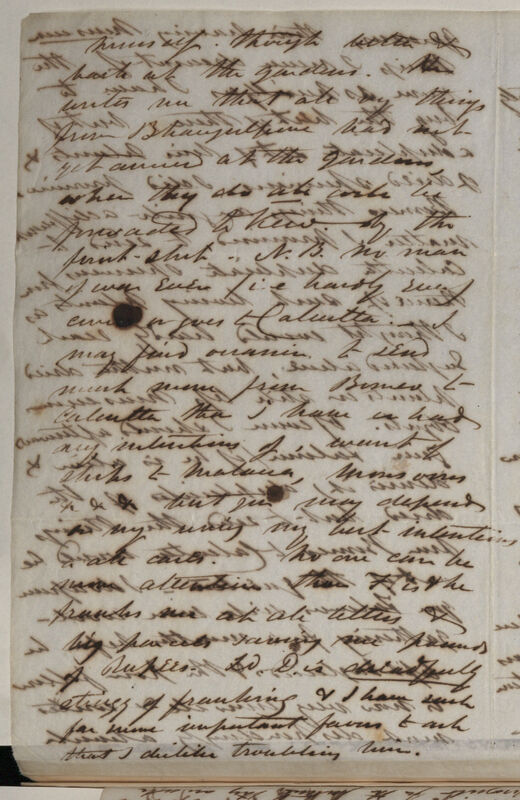 himself. though better &
back at the gardens. He
writes me that all my things
from Bhaugulpore had not
yet arrived at the Gardens,
when they do all will be
forwarded to Kew. by the
first ship. N.B. No man
of war ever (i.e hardly ever)
or goes to Calcutta. I
may find occasion to send
much more from Borneo to
Calcutta than I have in had
any intentions of, want of
ships to Malacca, monsoons
& & & but you may depend
on my using my best intentions
& all care. No one can be
more attentive than & he
franks me at all letters &
big parcels saving me pounds
of Rupees. Ld D is dreadfully
stingy of franking & I have such
far more important favors to ask
that I dislike troubling him.